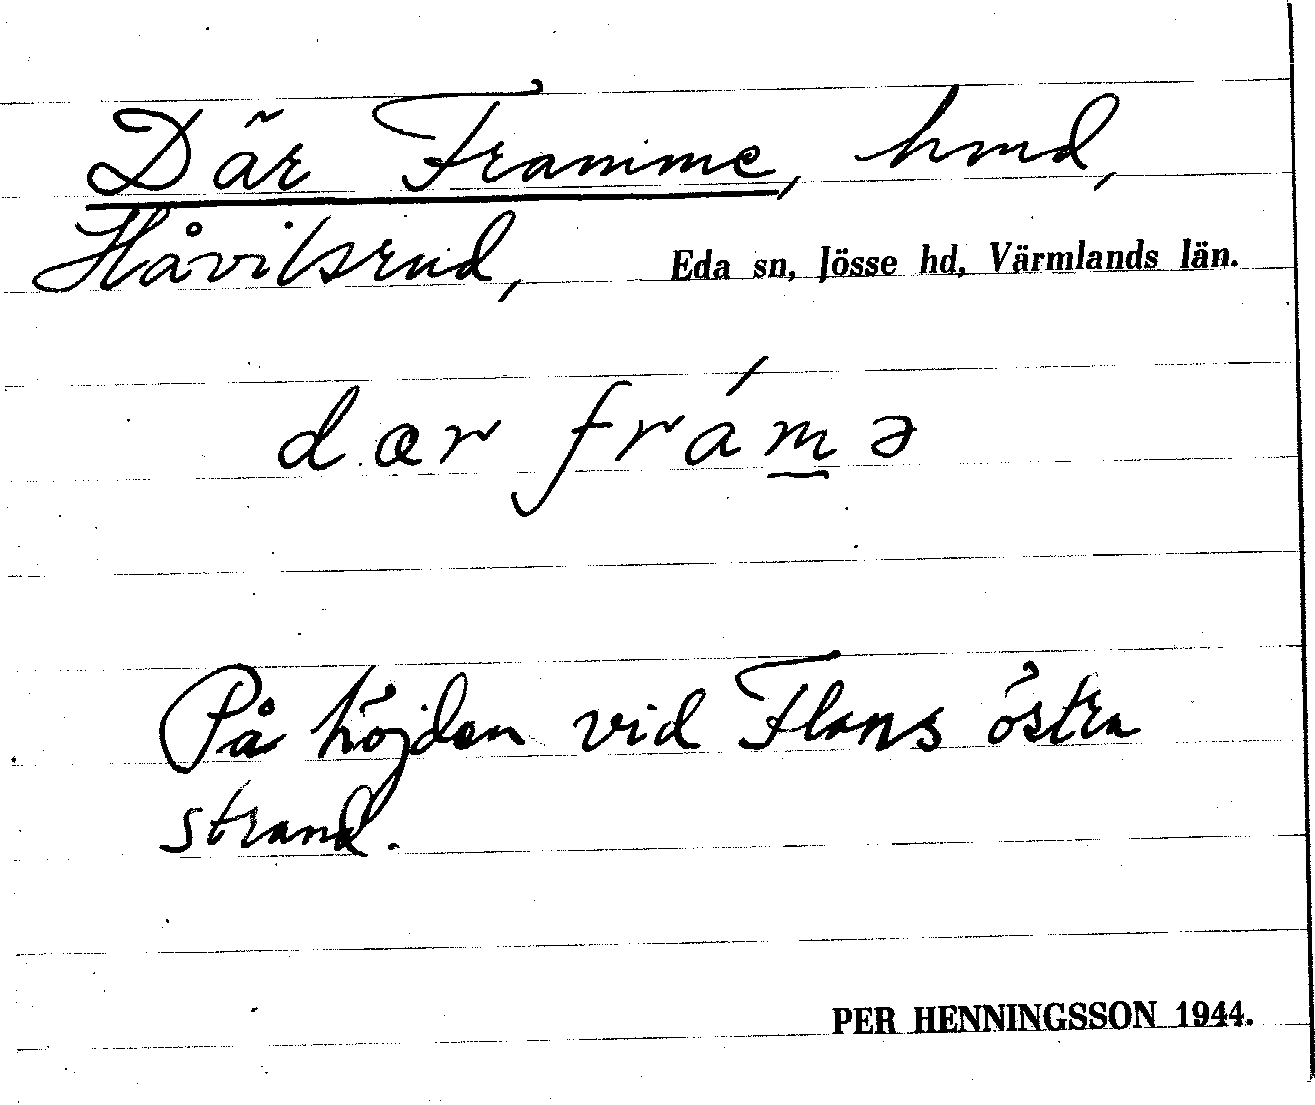 Där Framme, hmd,
Håvilsrud, Eda sn, Jösse hd, Värmlands län.
dær frám̲ə
På höjden vid Flans östra
strand.
PER HENNINGSSON 1944.